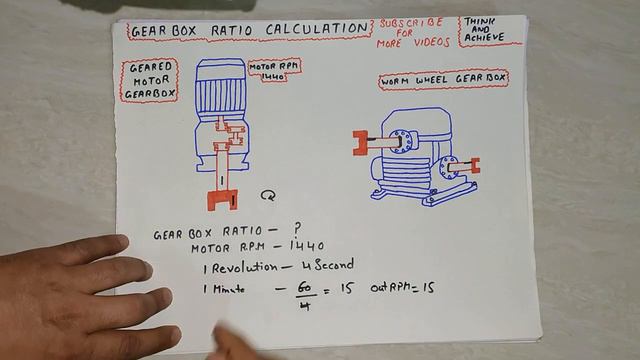 GEAR BOX RATIO CALCULATION
SUBSCRIBE
FOR
MORE VIDEOS
THINK
AND
ACHIEVE
GEARED
MOTOR
GEARBOX
MOTOR RPM
1440
WORM WHEEL GEAR BOX
GEAR BOX RATIO – ?
MOTOR R.P.M – 1440
1 Revolution – 4 Second
1 Minute – 60/4 = 15 out RPM = 15